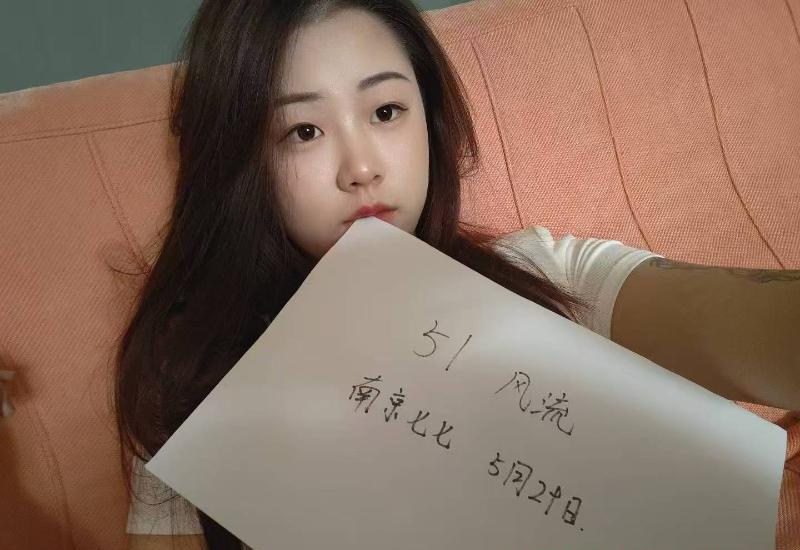 51 风流
南京七七 5月29日.